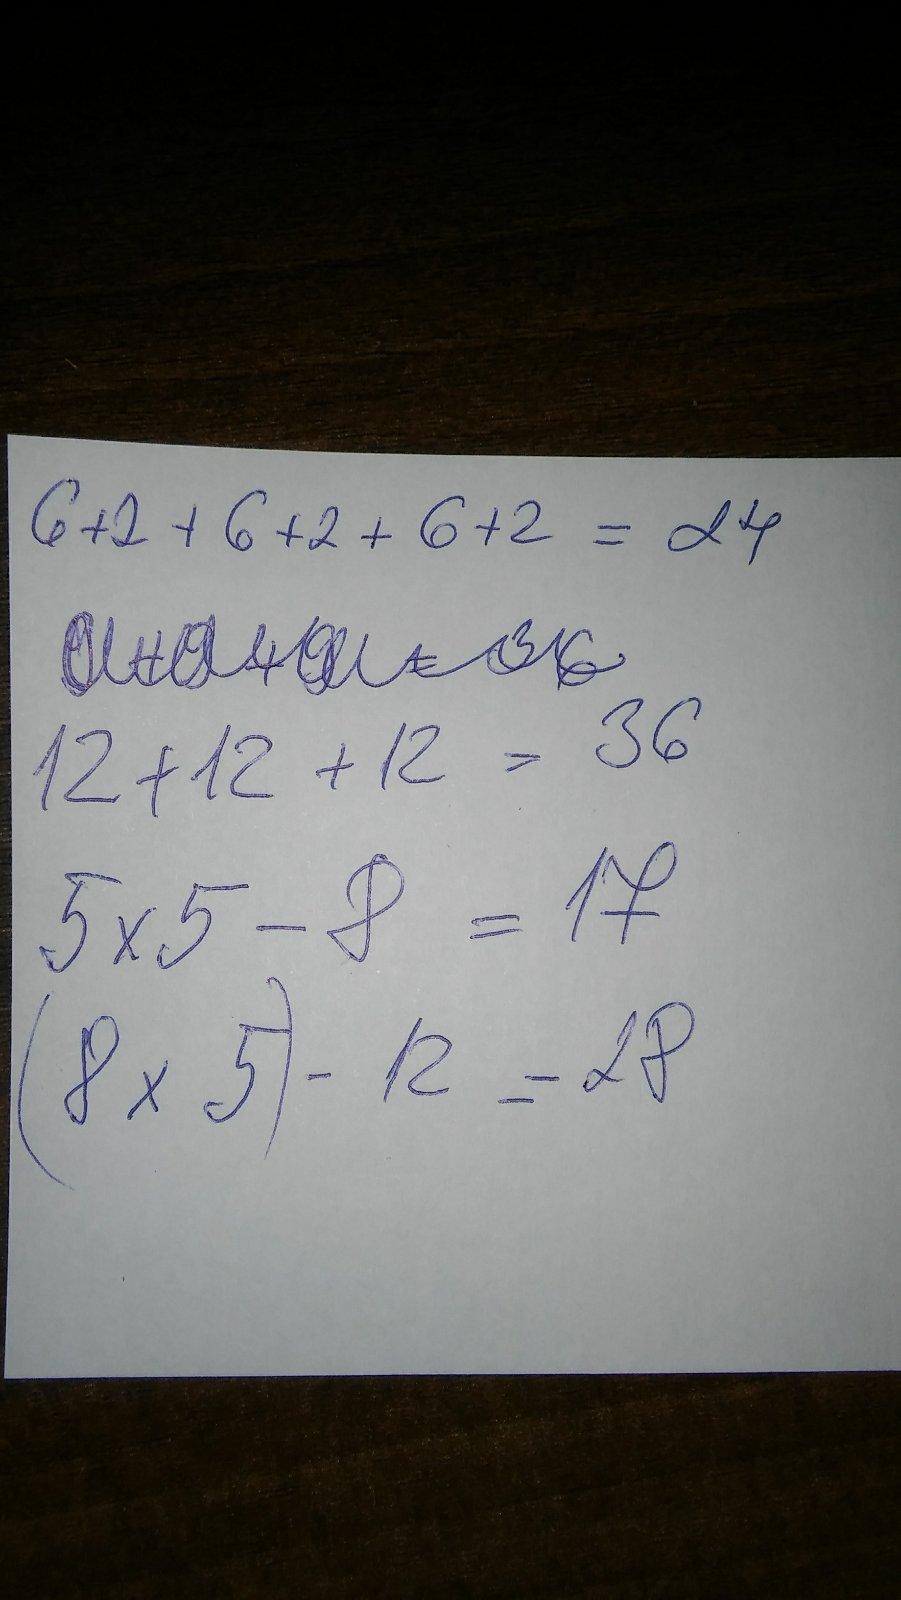 6+2+6+2+6+2=24
12+12+12=36
5x5-8=17
(8x5)-12=28